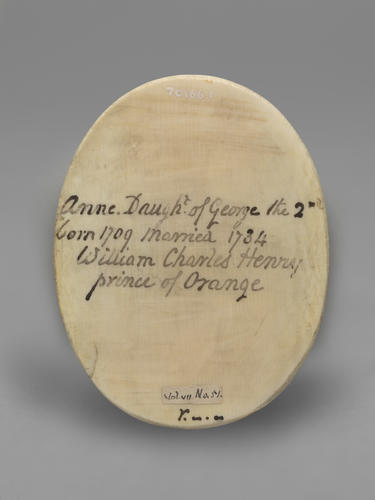 Anne. Daught. of George the 2nd
born 1709 married 1734
William Charles Henry
prince of Orange
Vol. VII No. 51.